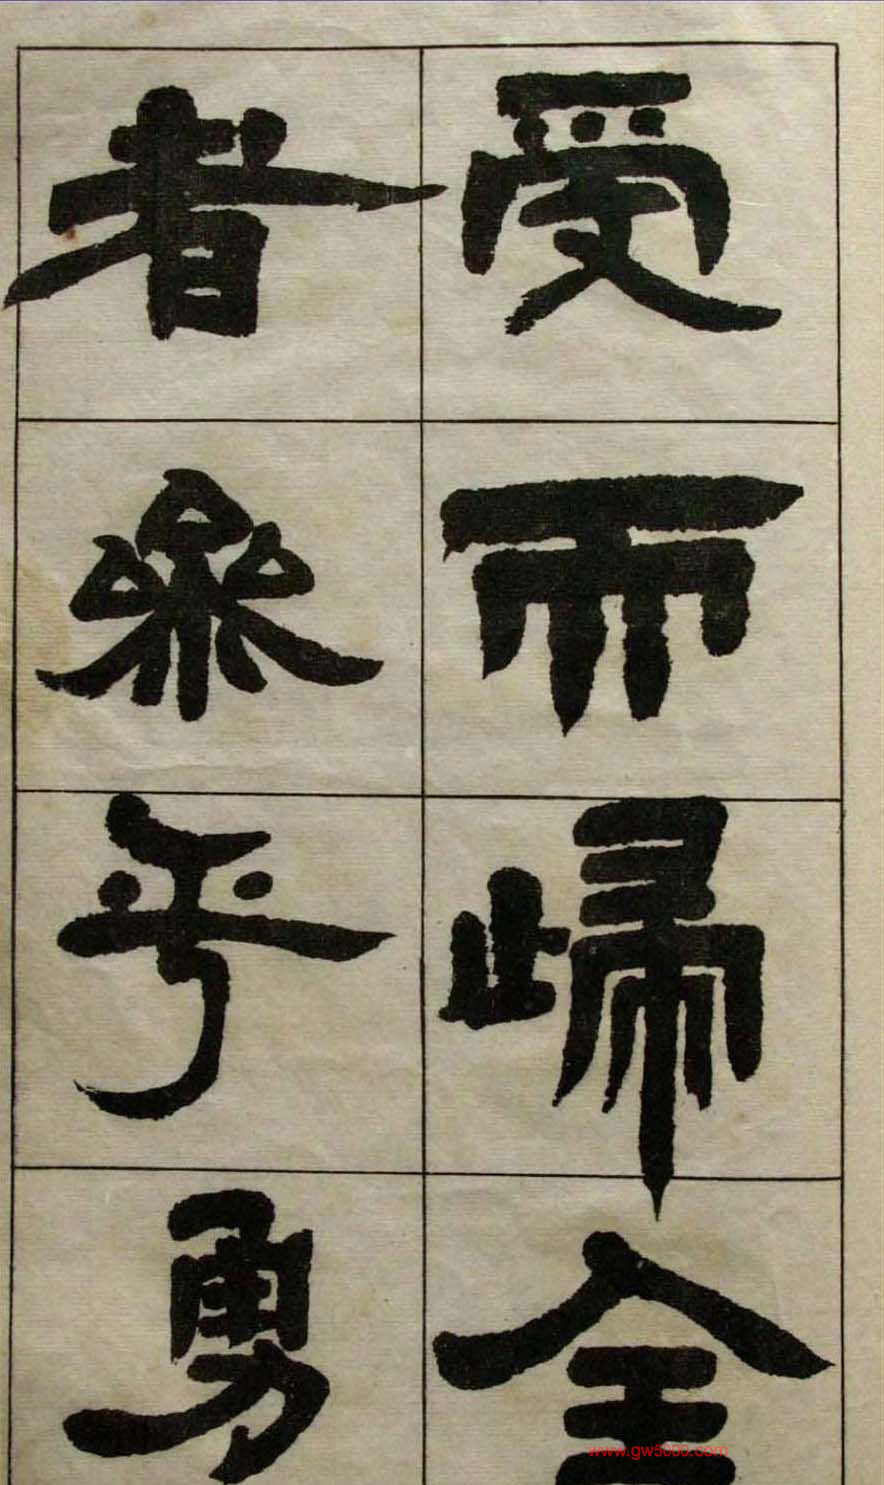 受而歸全
者參乎勇
www.gw5000.com